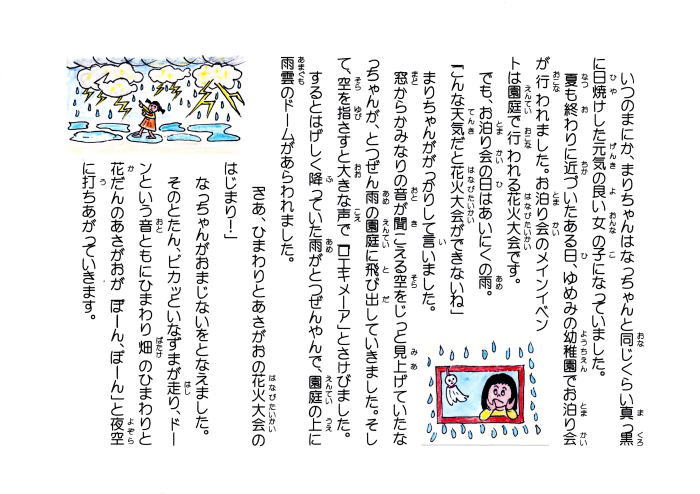 いつのまにか、まりちゃんはなっちゃんと同じくらい真っ黒
に日焼けした元気の良い女の子になっていました。
夏も終わりに近づいたある日、ゆめみの幼稚園でお泊り会
が行われました。お泊り会のメインイベン
トは園庭で行われる花火大会です。
でも、お泊り会の日はあいにくの雨。
「こんな天気だと花火大会ができないね」
まりちゃんががっかりして言いました。
窓からかみなりの音が聞こえる空をじっと見上げていたな
っちゃんが、とつぜん雨の園庭に飛び出していきました。そし
て、空を指さすと大きな声で「ロエキメーア」とさけびました。
するとはげしく降っていた雨がとつぜんやんで、園庭の上に
雨雲のドームがあらわれました。
「さあ、ひまわりとあさがおの花火大会の
はじまり！」
なっちゃんがおまじないをとなえました。
そのとたん、ピカッといなずまが走り、ドー
ンという音ともにひまわり畑のひまわりと
花だんのあさがおが「ぽーん、ぽーん」と夜空
に打ちあがっていきます。